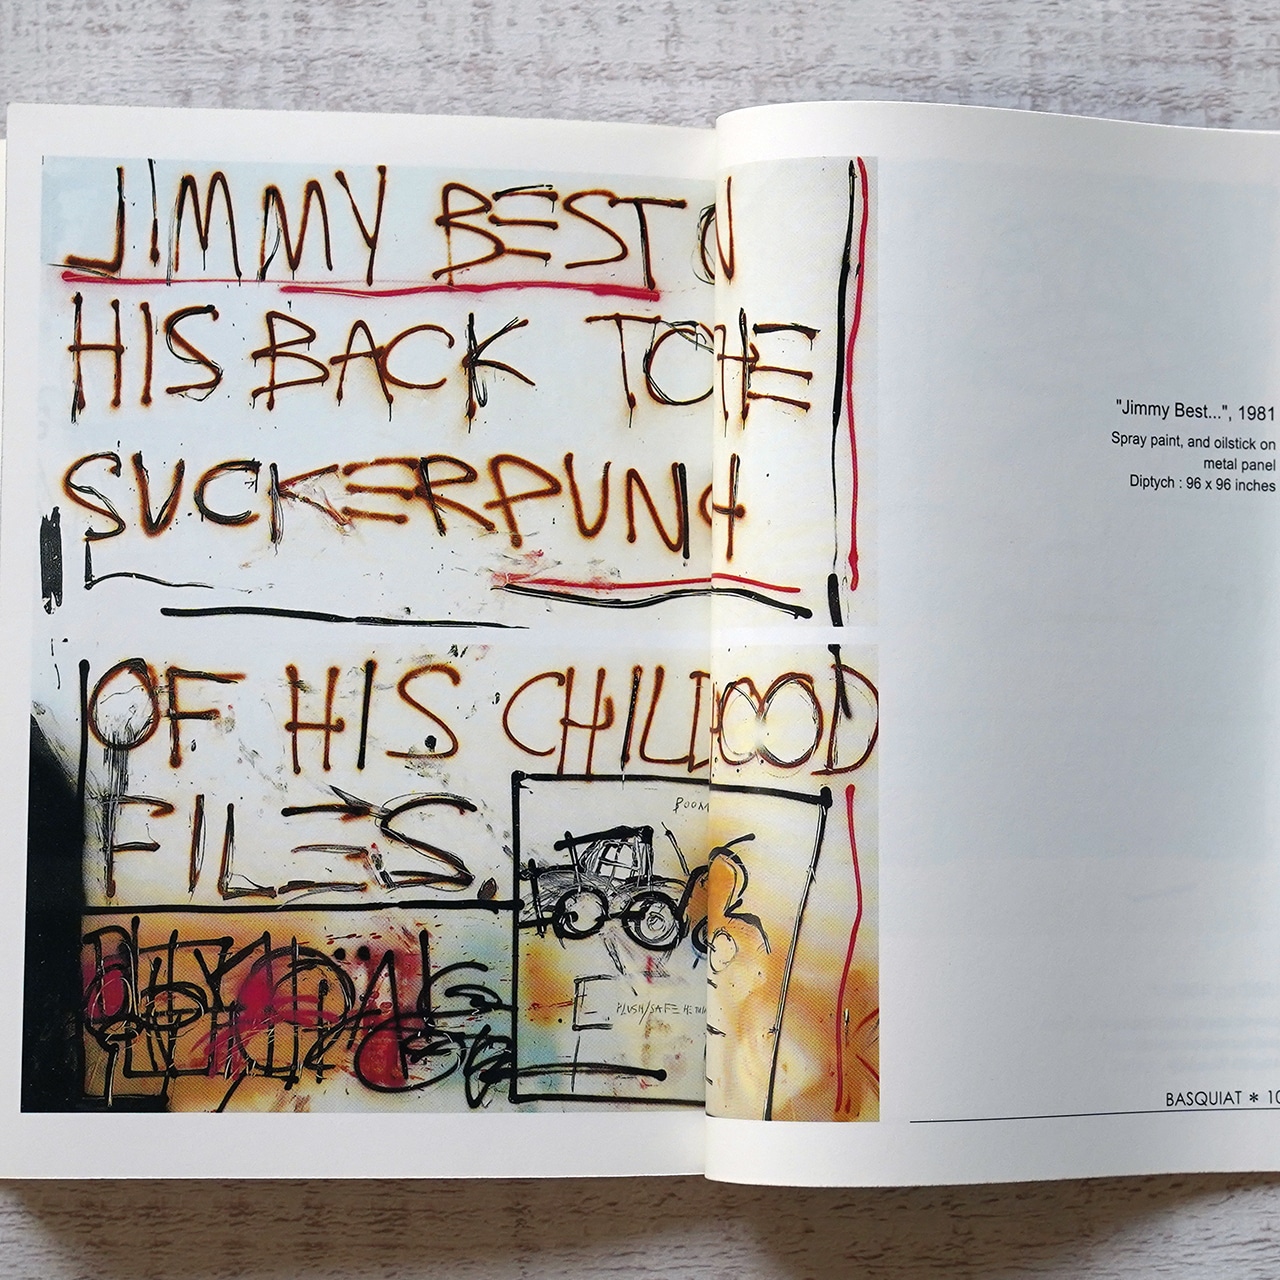 JIMMY BEST ON
HIS BACK TO THE
SUCKERPUNCH
OF HIS CHILDHOOD
FILES.
BOOM
PLUSH/SAFE HE
"Jimmy Best...", 1981
Spray paint, and oilstick on
metal panel
Diptych : 96 x 96 inches
BASQUIAT * 10